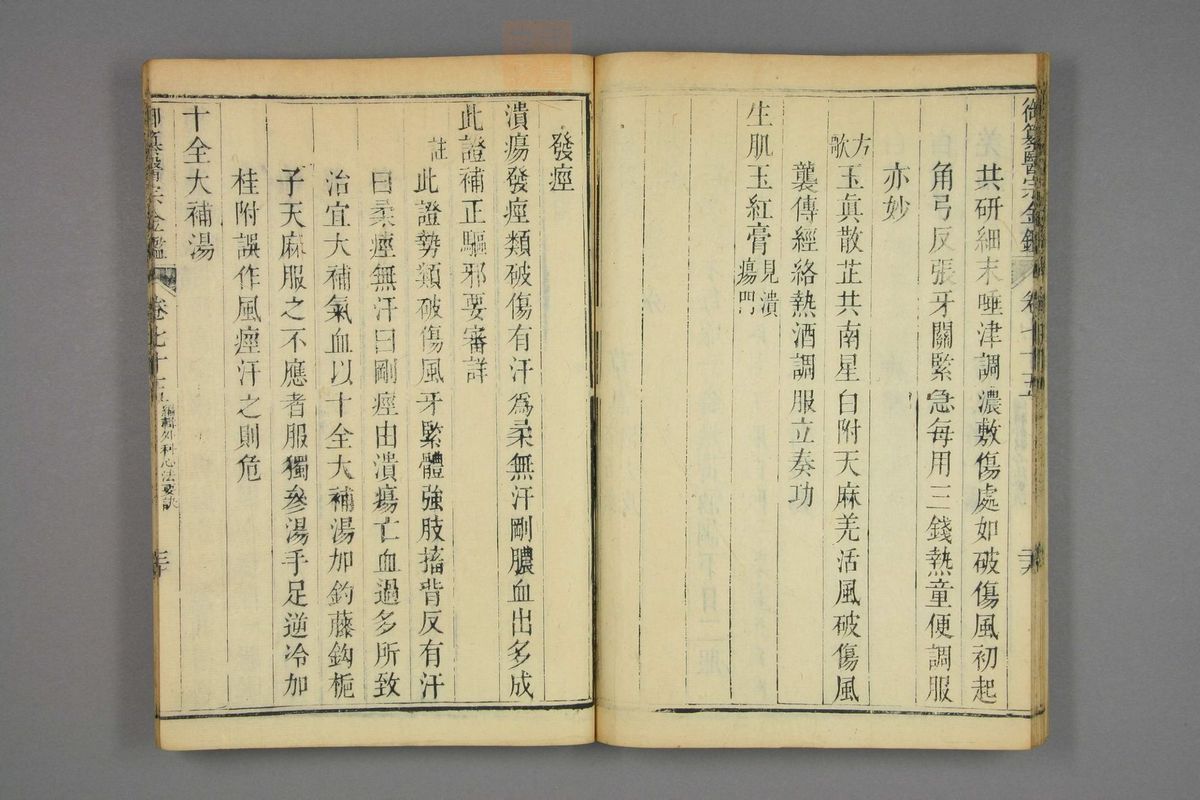 御纂醫宗金鑑 卷七十五
共研細末唾津調濃敷傷處如破傷風初起
角弓反張牙關緊急每用三錢熱童便調服
亦妙
方歌 玉真散芷共南星白附天麻羌活風破傷風
襲傳經絡熱酒調服立奏功
生肌玉紅膏 見潰瘍門
發痙
潰瘍發痙類破傷有汗為柔無汗剛膿血出多成
此證補正驅邪要審詳
註 此證勢類破傷風牙緊體強肢搐背反有汗
曰柔痙無汗曰剛痙由潰瘍亡血過多所致
治宜大補氣血以十全大補湯加釣藤鈎梔
子天麻服之不應者服獨參湯手足逆冷加
桂附誤作風痙汗之則危
十全大補湯
御纂醫宗金鑑 卷七十五 編輯外科心法要訣